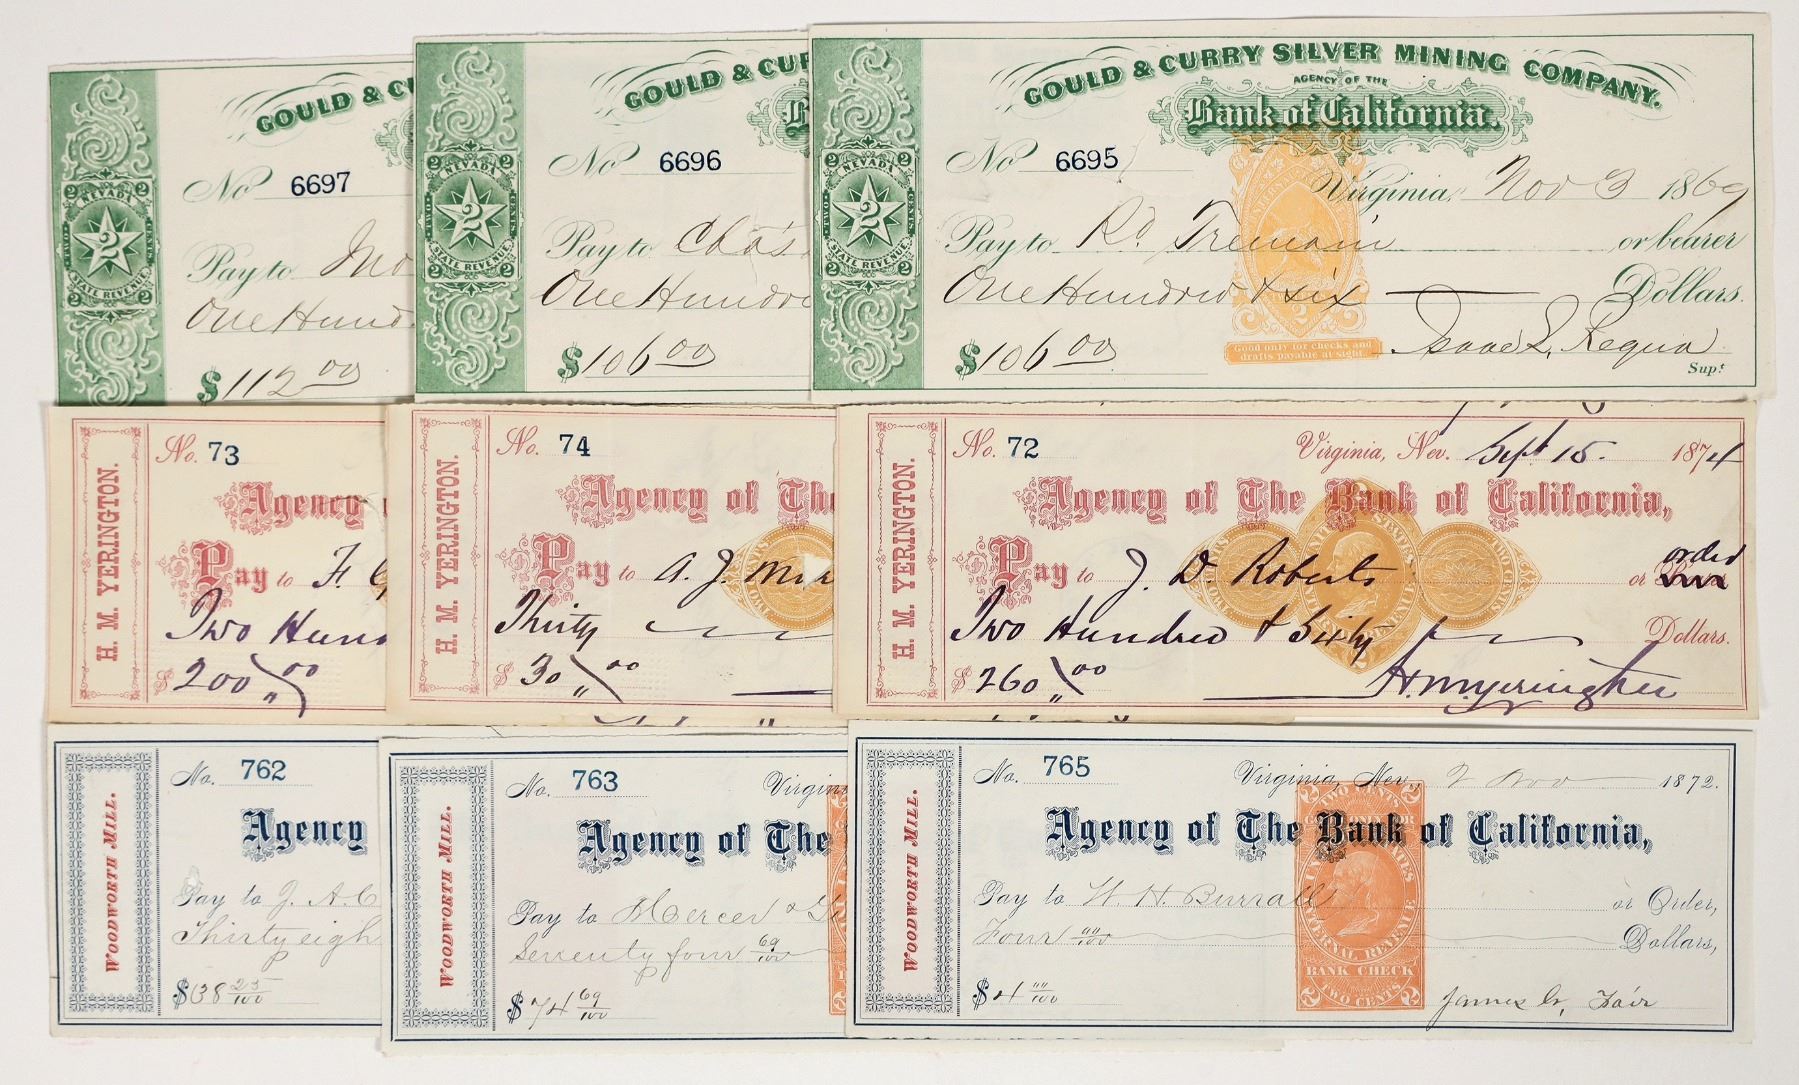 GOULD & CU
NEVADA
2 2
TWO CENTS
2
STATE REVENUE
2 2
No 6697
Pay to Jno
One Hund
$112 00
GOULD & CUR
NEVADA
2 2
TWO CENTS
2
STATE REVENUE
2 2
No 6696
Pay to Chas
One Hundre
$106 00
GOULD & CURRY SILVER MINING COMPANY.
AGENCY OF THE
Bank of California.
NEVADA
2 2
TWO CENTS
2
STATE REVENUE
2 2
No 6695
Virginia, Nov 3 1869
Pay to Rd. Tremain or bearer
One Hundred & six Dollars.
$106 00
Good only for checks and
drafts payable at sight.
Isaac L. Requa
Supt
H. M. YERINGTON.
No. 73
Agency
Pay to F.
Two Hun
$200 00
H. M. YERINGTON.
No. 74
Agency of The
Pay to A. J.
Thirty
$30 00
H. M. YERINGTON.
No. 72 Virginia, Nev. Sept 15 1874
Agency of The Bank of California,
Pay to J. D. Roberts or order
Two Hundred & Sixty Dollars.
$260 00
H. M. Yerington
WOODWORTH MILL.
No. 762
Agency
Pay to J. A. C
Thirty eigh
$38 25/100
WOODWORTH MILL.
No. 763 Virgin
Agency of The
Pay to Mercer &
Seventy four 69/100
$74 69/100
WOODWORTH MILL.
No. 765 Virginia, Nev., 2 Nov 1872.
Agency of The Bank of California,
Pay to W. H. Burrall or Order,
Four 00/100 Dollars,
$4 00/100
TWO CENTS
GOOD ONLY FOR
UNITED STATES
INTERNAL REVENUE
BANK CHECK
TWO CENTS
James G. Fair